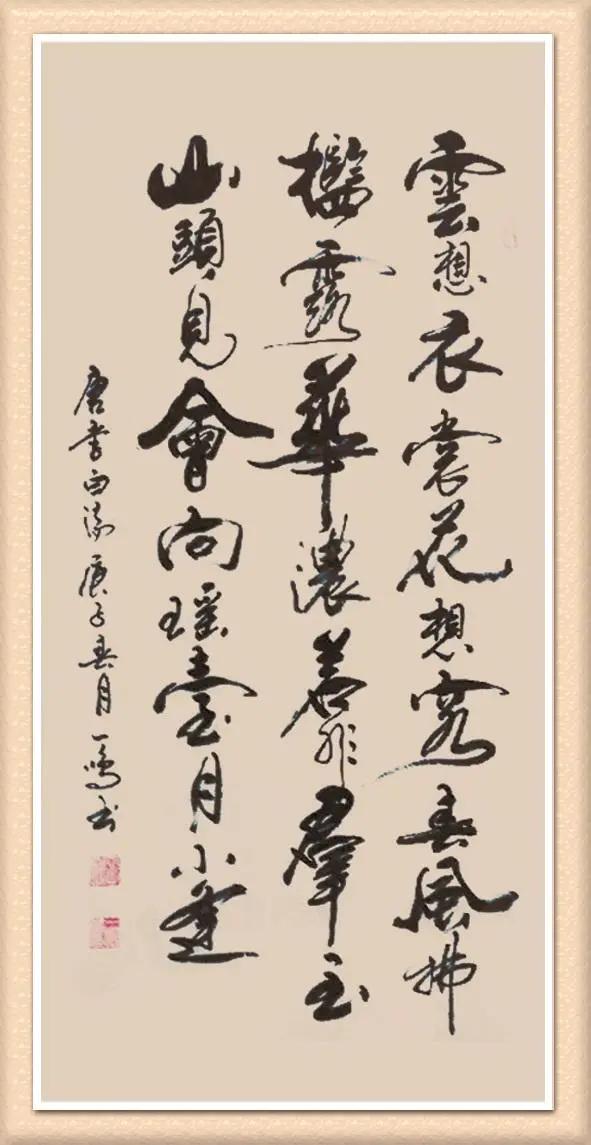 雲想衣裳花想容春風拂
檻露華濃若非羣玉
山頭見會向瑶臺月下逢
唐李白詩庚子春月一鳴书